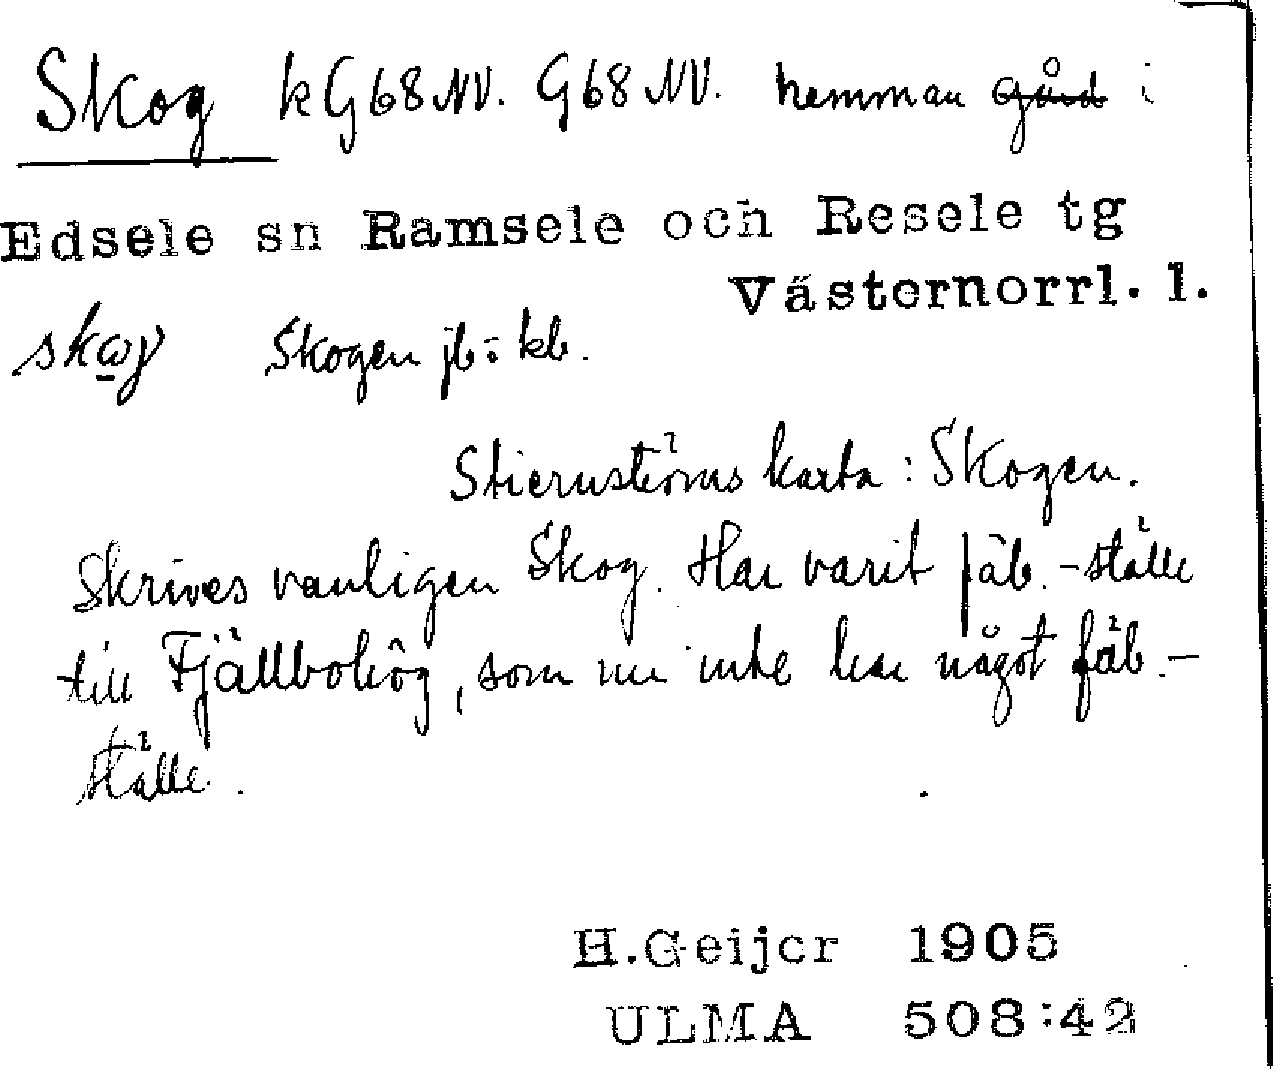 Skog kG68NV. G68NV. hemman gård i
Edsele sn Ramsele och Resele tg
Västernorrl. l.
skωγ Skogen jb. o. kb.
Stiernströms karta: Skogen.
Skrives vanligen Skog. Har varit fäb.-ställe
till Fjällbohög, som nu inte har något fäb.-
ställe.
H.Geijer 1905
ULMA 508:42